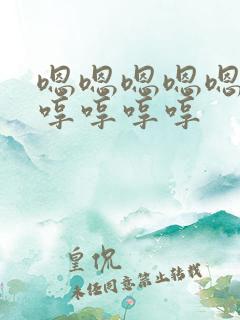 嗯嗯嗯嗯嗯
哼哼哼哼
皇侃
未经同意禁止转载